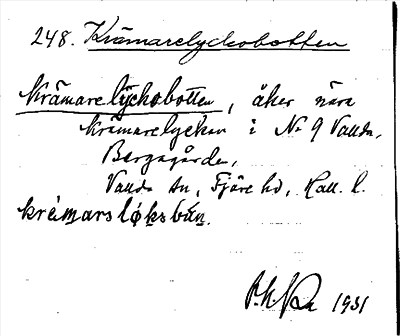 248. Krämarelyckobotten
Krämarelyckobotten, åker nära
Krämarelyckan i No 9 Valda,
Bergagården,
Valda sn, Fjäre hd, Hall. l.
krémarsløksbún.
1931